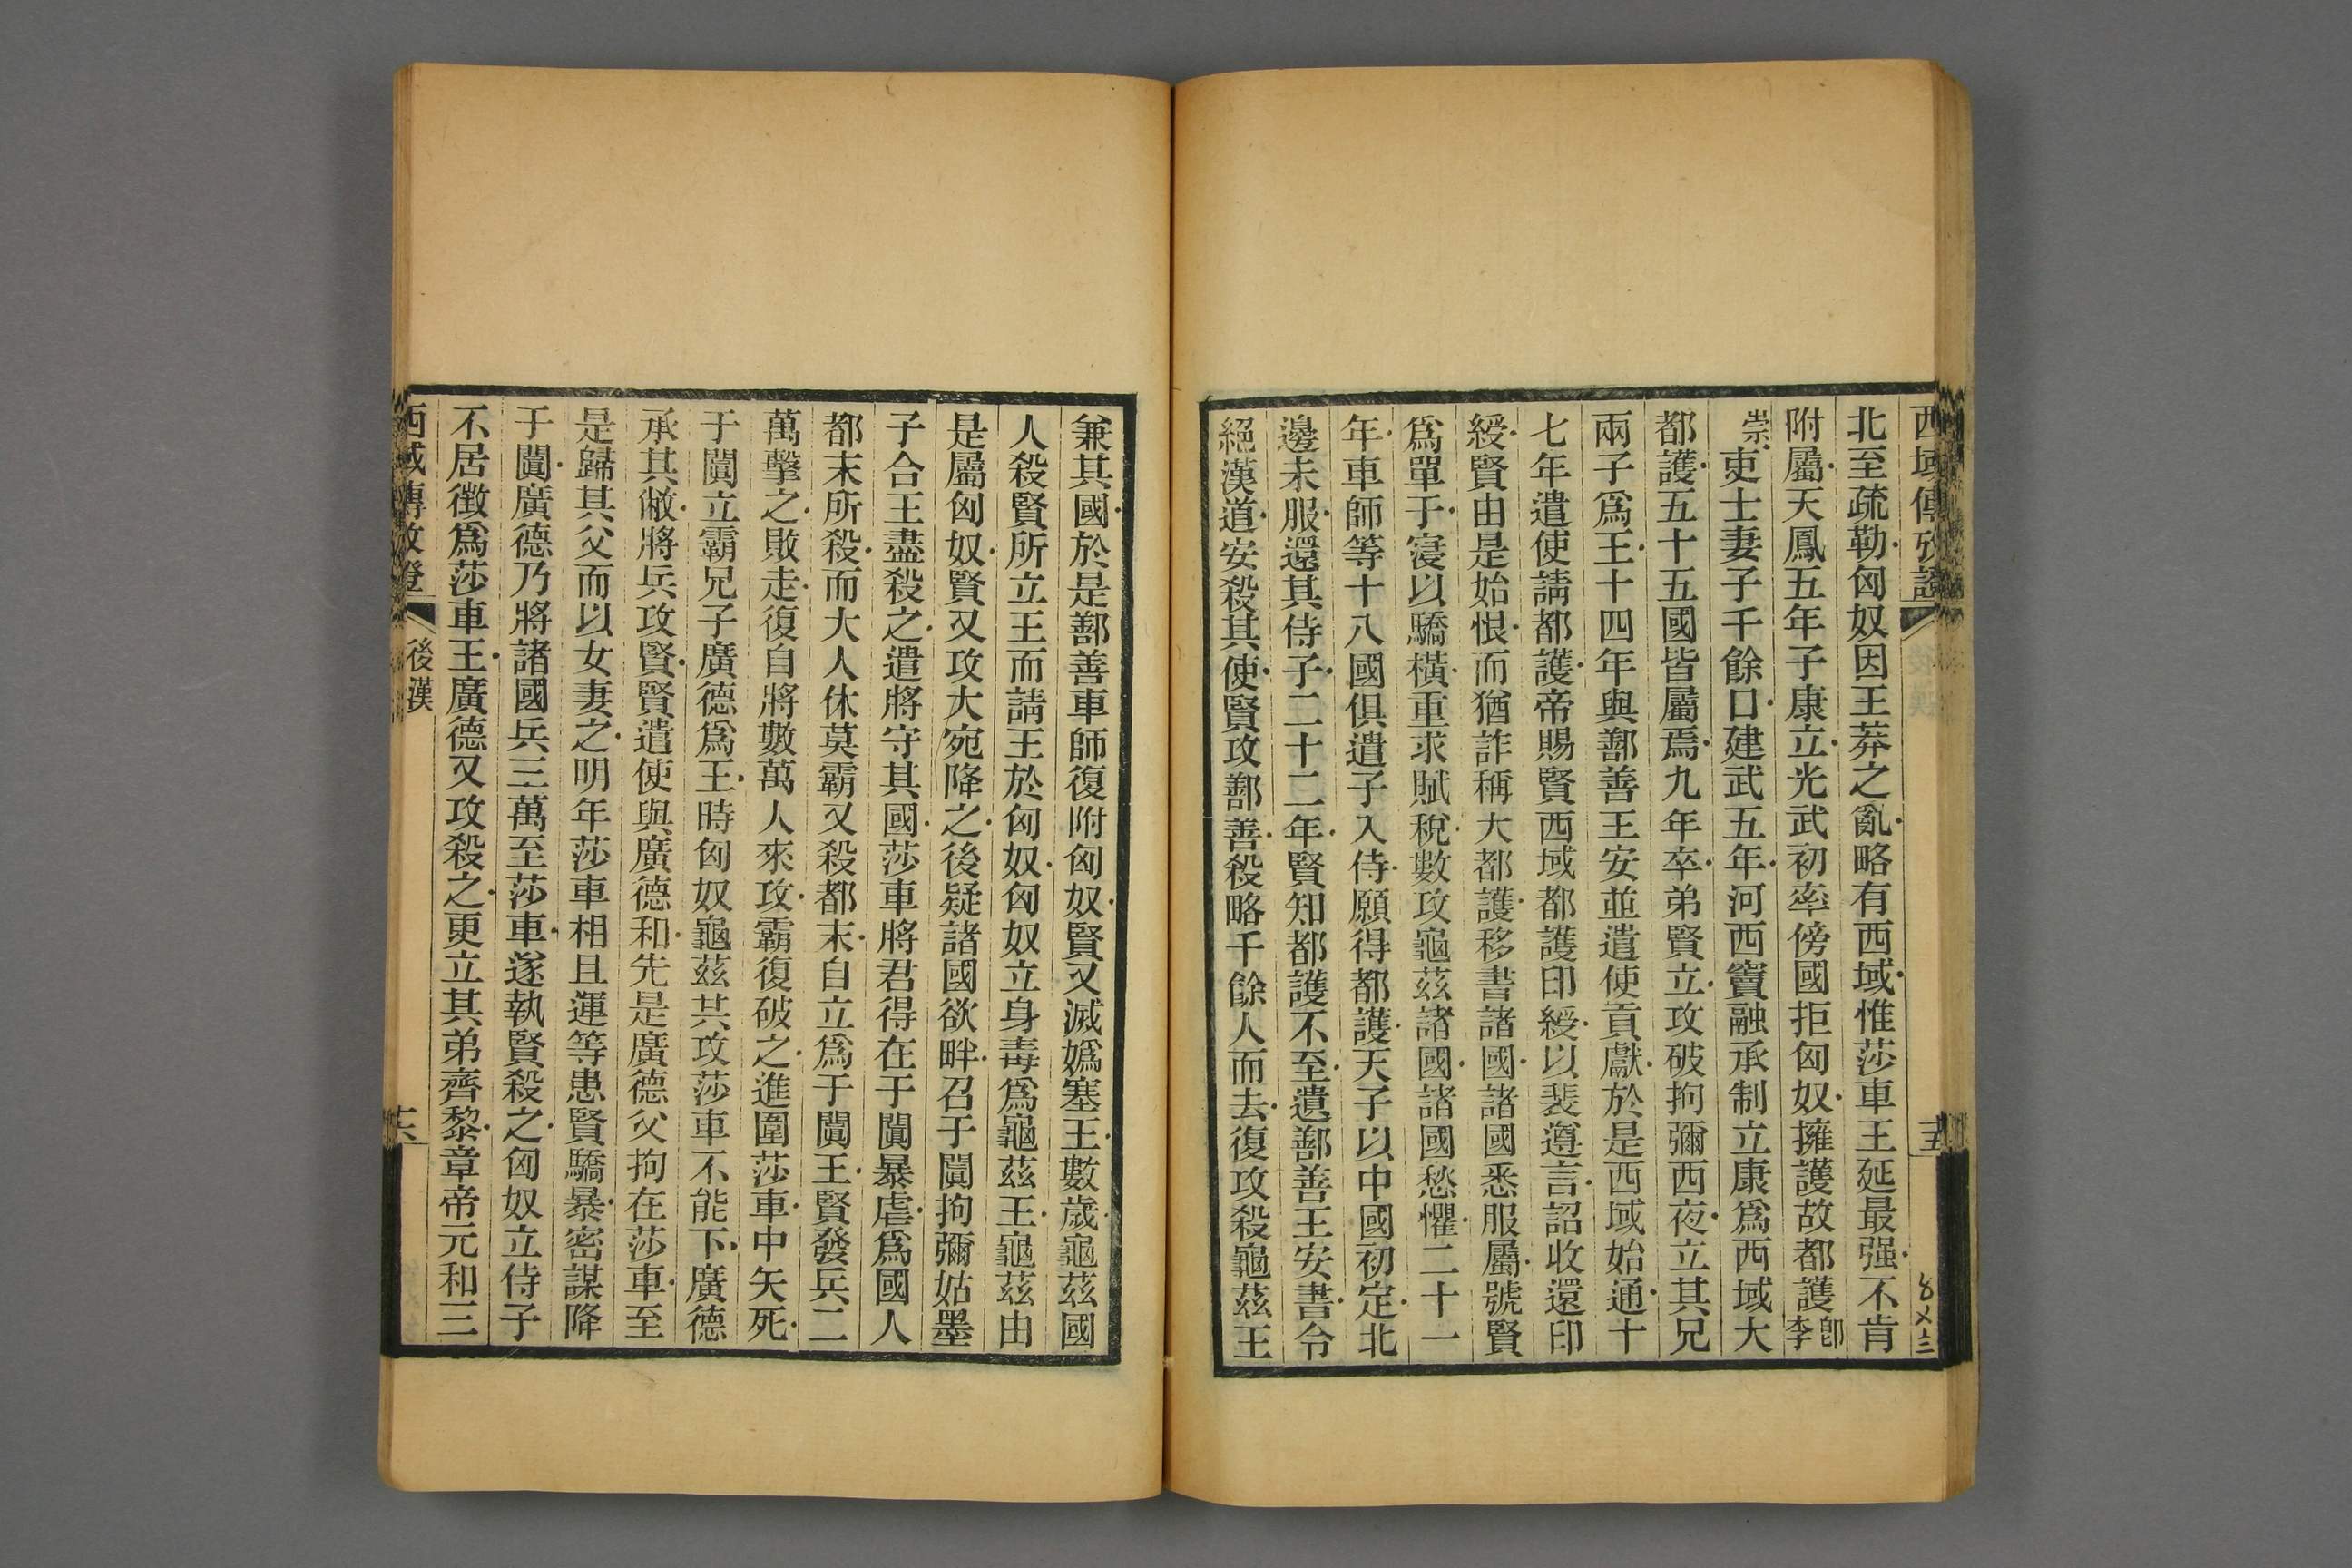 西域傳攷證
十五
北至疏勒匈奴因王莽之亂略有西域惟莎車王延最强不肯
附屬天鳳五年子康立光武初率傍國拒匈奴擁護故都護卽李
崇吏士妻子千餘口建武五年河西竇融承制立康爲西域大
都護五十五國皆屬焉九年卒弟賢立攻破拘彌西夜立其兄
兩子爲王十四年與鄯善王安並遣使貢獻於是西域始通十
七年遣使請都護帝賜賢西域都護印綬以裴遵言詔收還印
綬賢由是始恨而猶詐稱大都護移書諸國諸國悉服屬號賢
爲單于寖以驕橫重求賦稅數攻龜茲諸國諸國愁懼二十一
年車師等十八國俱遣子入侍願得都護天子以中國初定北
邊未服還其侍子二十二年賢知都護不至遺鄯善王安書令
絕漢道安殺其使賢攻鄯善殺略千餘人而去復攻殺龜茲王
兼其國於是鄯善車師復附匈奴賢又滅嬀塞王數歲龜茲國
人殺賢所立王而請王於匈奴匈奴立身毒爲龜茲王龜茲由
是屬匈奴賢又攻大宛降之後疑諸國欲畔召于闐拘彌姑墨
子合王盡殺之遣將守其國莎車將君得在于闐暴虐爲國人
都末所殺而大人休莫霸又殺都末自立爲于闐王賢發兵二
萬擊之敗走復自將數萬人來攻霸復破之進圍莎車中矢死
于闐立霸兄子廣德爲王時匈奴龜茲共攻莎車不能下廣德
承其敝將兵攻賢賢遣使與廣德和先是廣德父拘在莎車至
是歸其父而以女妻之明年莎車相且運等患賢驕暴密謀降
于闐廣德乃將諸國兵三萬至莎車遂執賢殺之匈奴立侍子
不居徵爲莎車王廣德又攻殺之更立其弟齊黎章帝元和三
西域傳攷證
後漢
十六